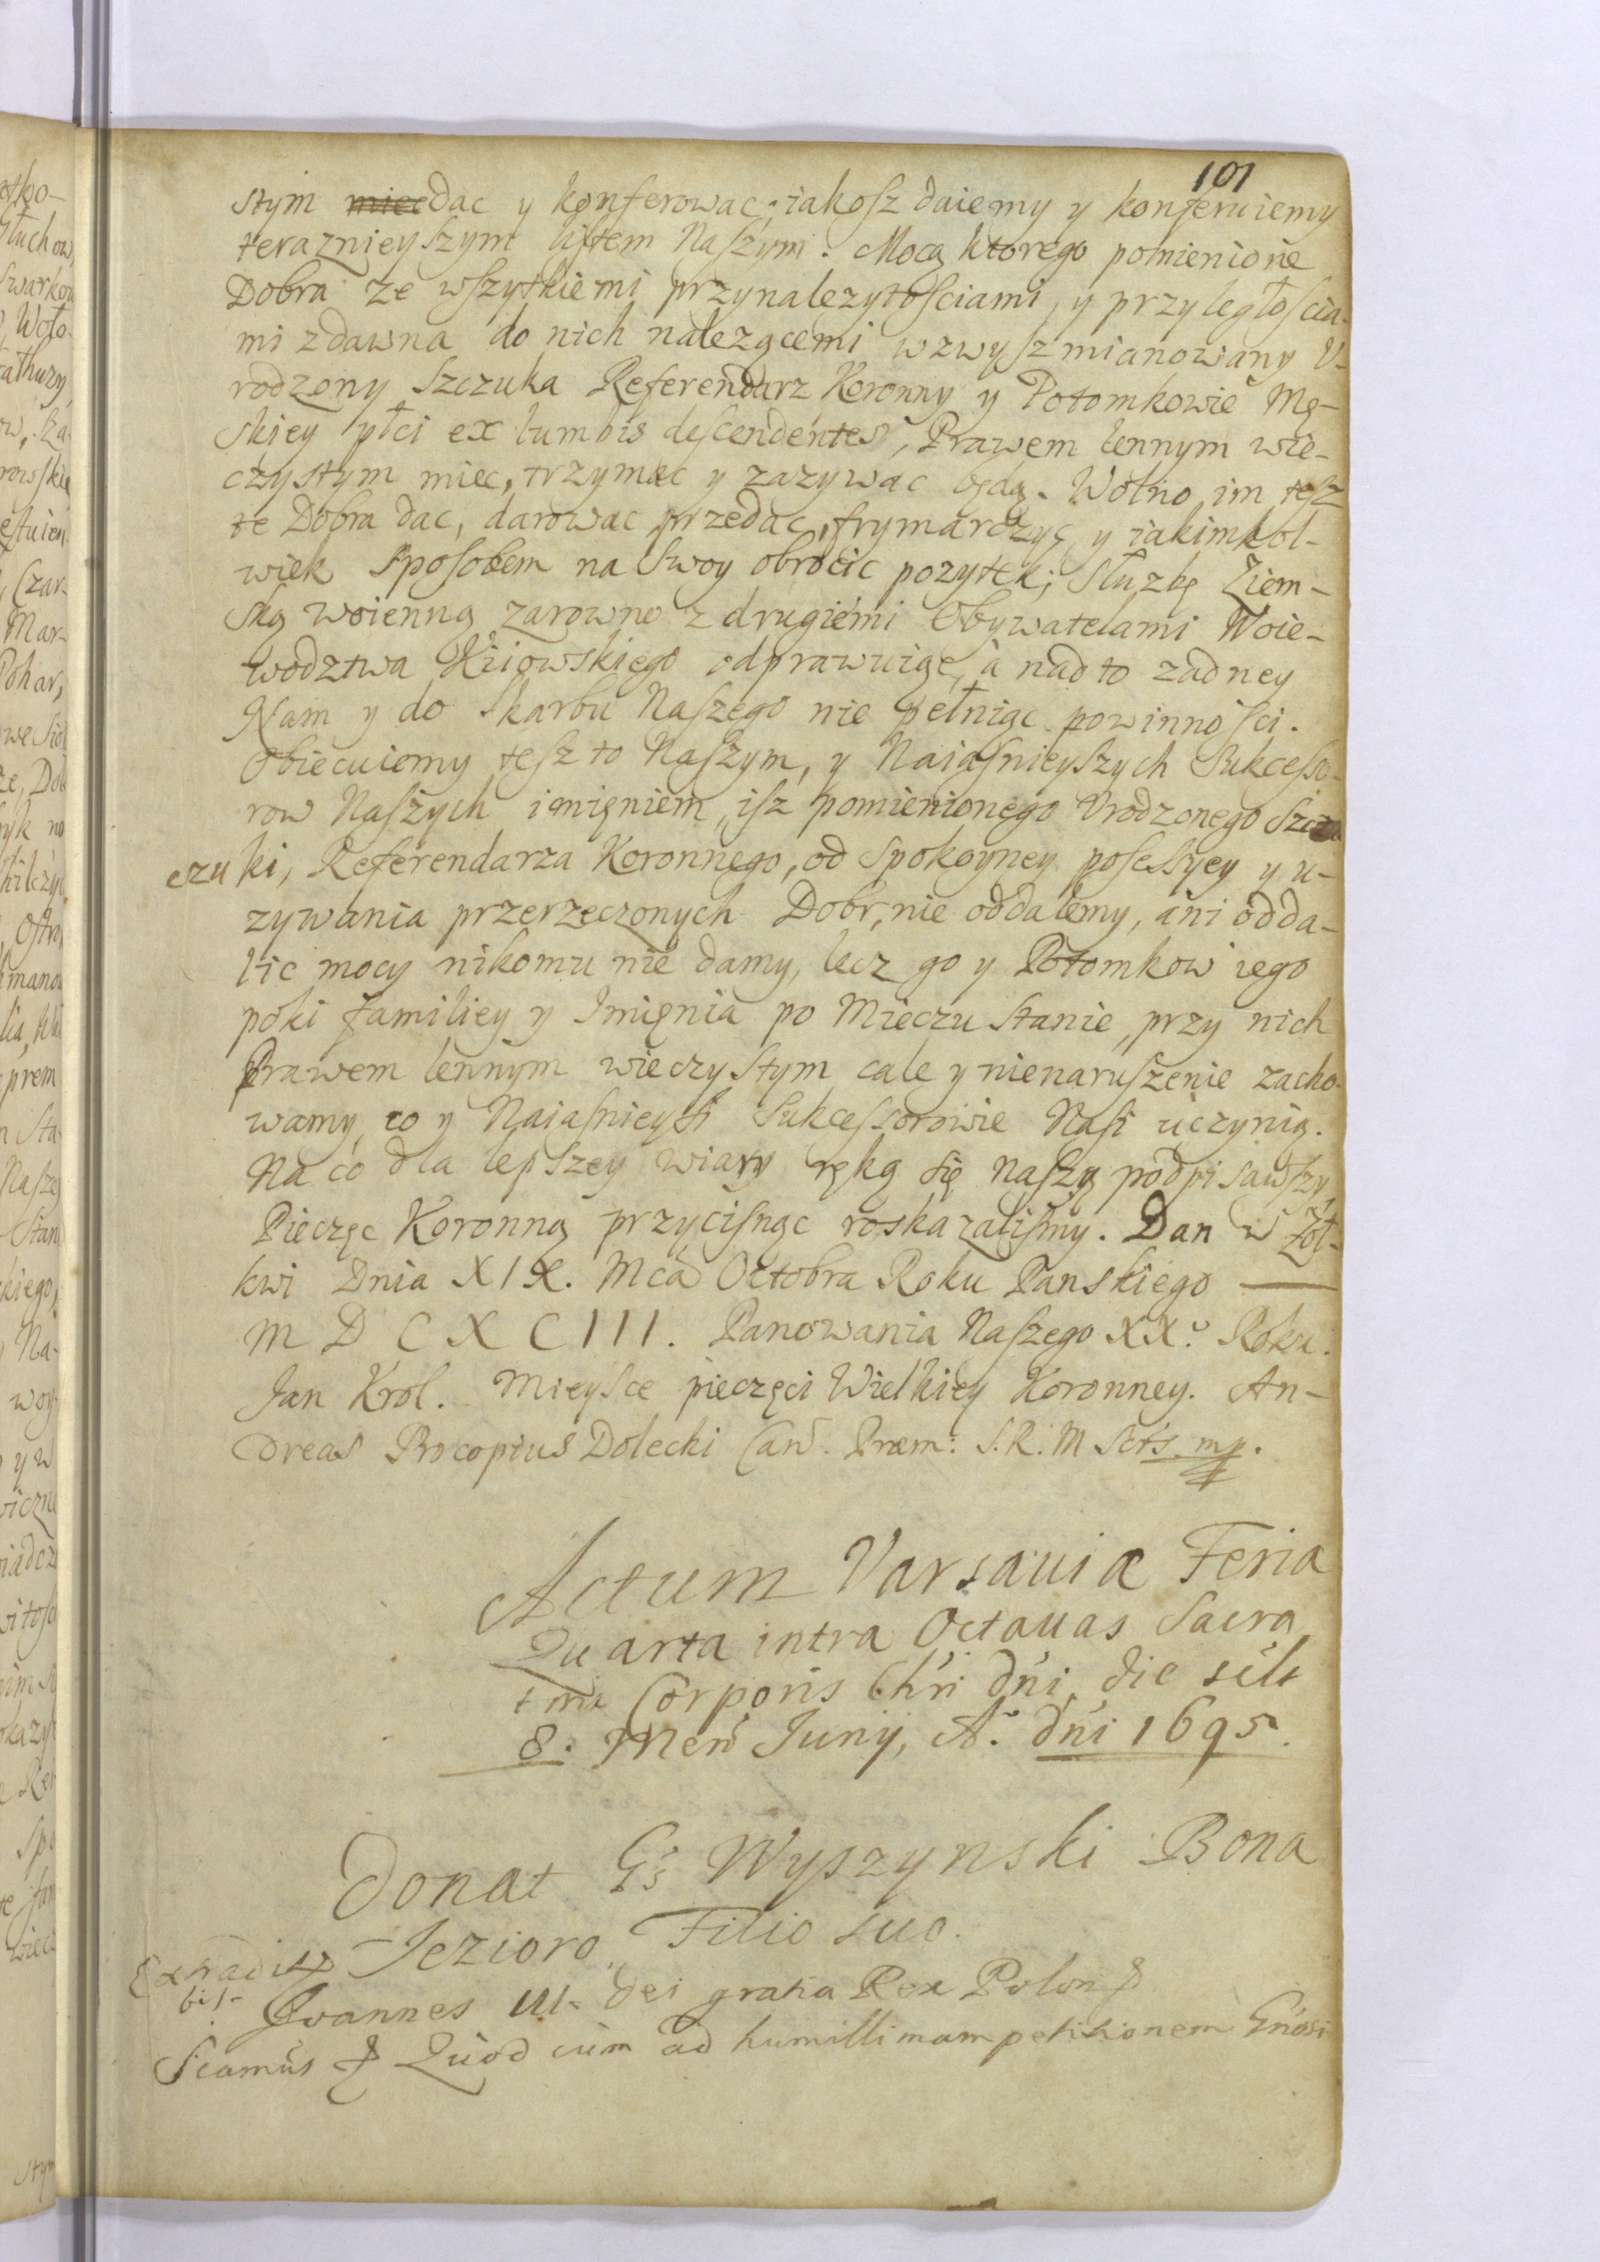 101
stym miec dac y konferowac, iakosz daiemy y konferuiemy
teraznieyszym listem Naszym. Mocą ktorego pomienione
Dobra ze wszytkiemi przynalezytosciami, y przyległoscia-
mi zdawna do nich nalezącemi wzwysz mianowany U-
rodzony Szczuka Referendarz Koronny y Potomkowie Mę-
skiey płci ex lumbis descendentes, Prawem lennym wie-
czystym miec, trzymac y zazywac będą. Wolno im tesz
te Dobra dac, darowac przedac, frymarczyc y iakimkol-
wiek sposobem na swoy obrocic pozytek; Służbę Ziem-
ską woienną zarowno z drugiemi Obywatelami Woie-
wodztwa Kiiowskiego odprawuiąc, a nad to zadney
Nam y do Skarbu Naszego nie pełniąc powinnosci.
Obiecuiemy tesz to Naszym, y Naiasnieyszych Sukcesso-
row Naszych imięniem, isz pomienionego Urodzonego Szcz
czuki, Referendarza Koronnego, od spokoyney possessyey y u-
zywania przerzeczonych Dobr, nie oddalemy, ani odda-
lic mocy nikomu nie damy, lecz go y Potomkow iego
poki familiey y Imięnia po Mieczu stanie, przy nich
Prawem lennym wieczystym cale y nienaruszenie zacho-
wamy, co y Naiasnieysi Sukcessorowie Nasi uczynią.
Na co dla lepszey wiary ręką się naszą podpisawszy,
Pieczęc Koronną przycisnąc roskazalismy. Dan w Zoł-
kwi Dnia XIX. Mca Octobra Roku Panskiego
M D C X C III. Panowania Naszego XX.º Roku.
Jan Krol. Mieysce pieczęci Wielkiey Koronney. An-
dreas Procopius Dolecki Can. Præm: S. R. M Scts. mp.
Actum Varsaviæ Feria
Quarta intra Octavas Sacra
tmi Corporis Chri dni die scilt
8. Mens Junij, Aº. dni 1695.
Donat Gs Wyszynski Bona
Jezioro, Filio suo.
Extradit
bis-
Joannes III. Dei gratia Rex Polon
Scamus Quod cum ad humillimam petitionem Gnosi